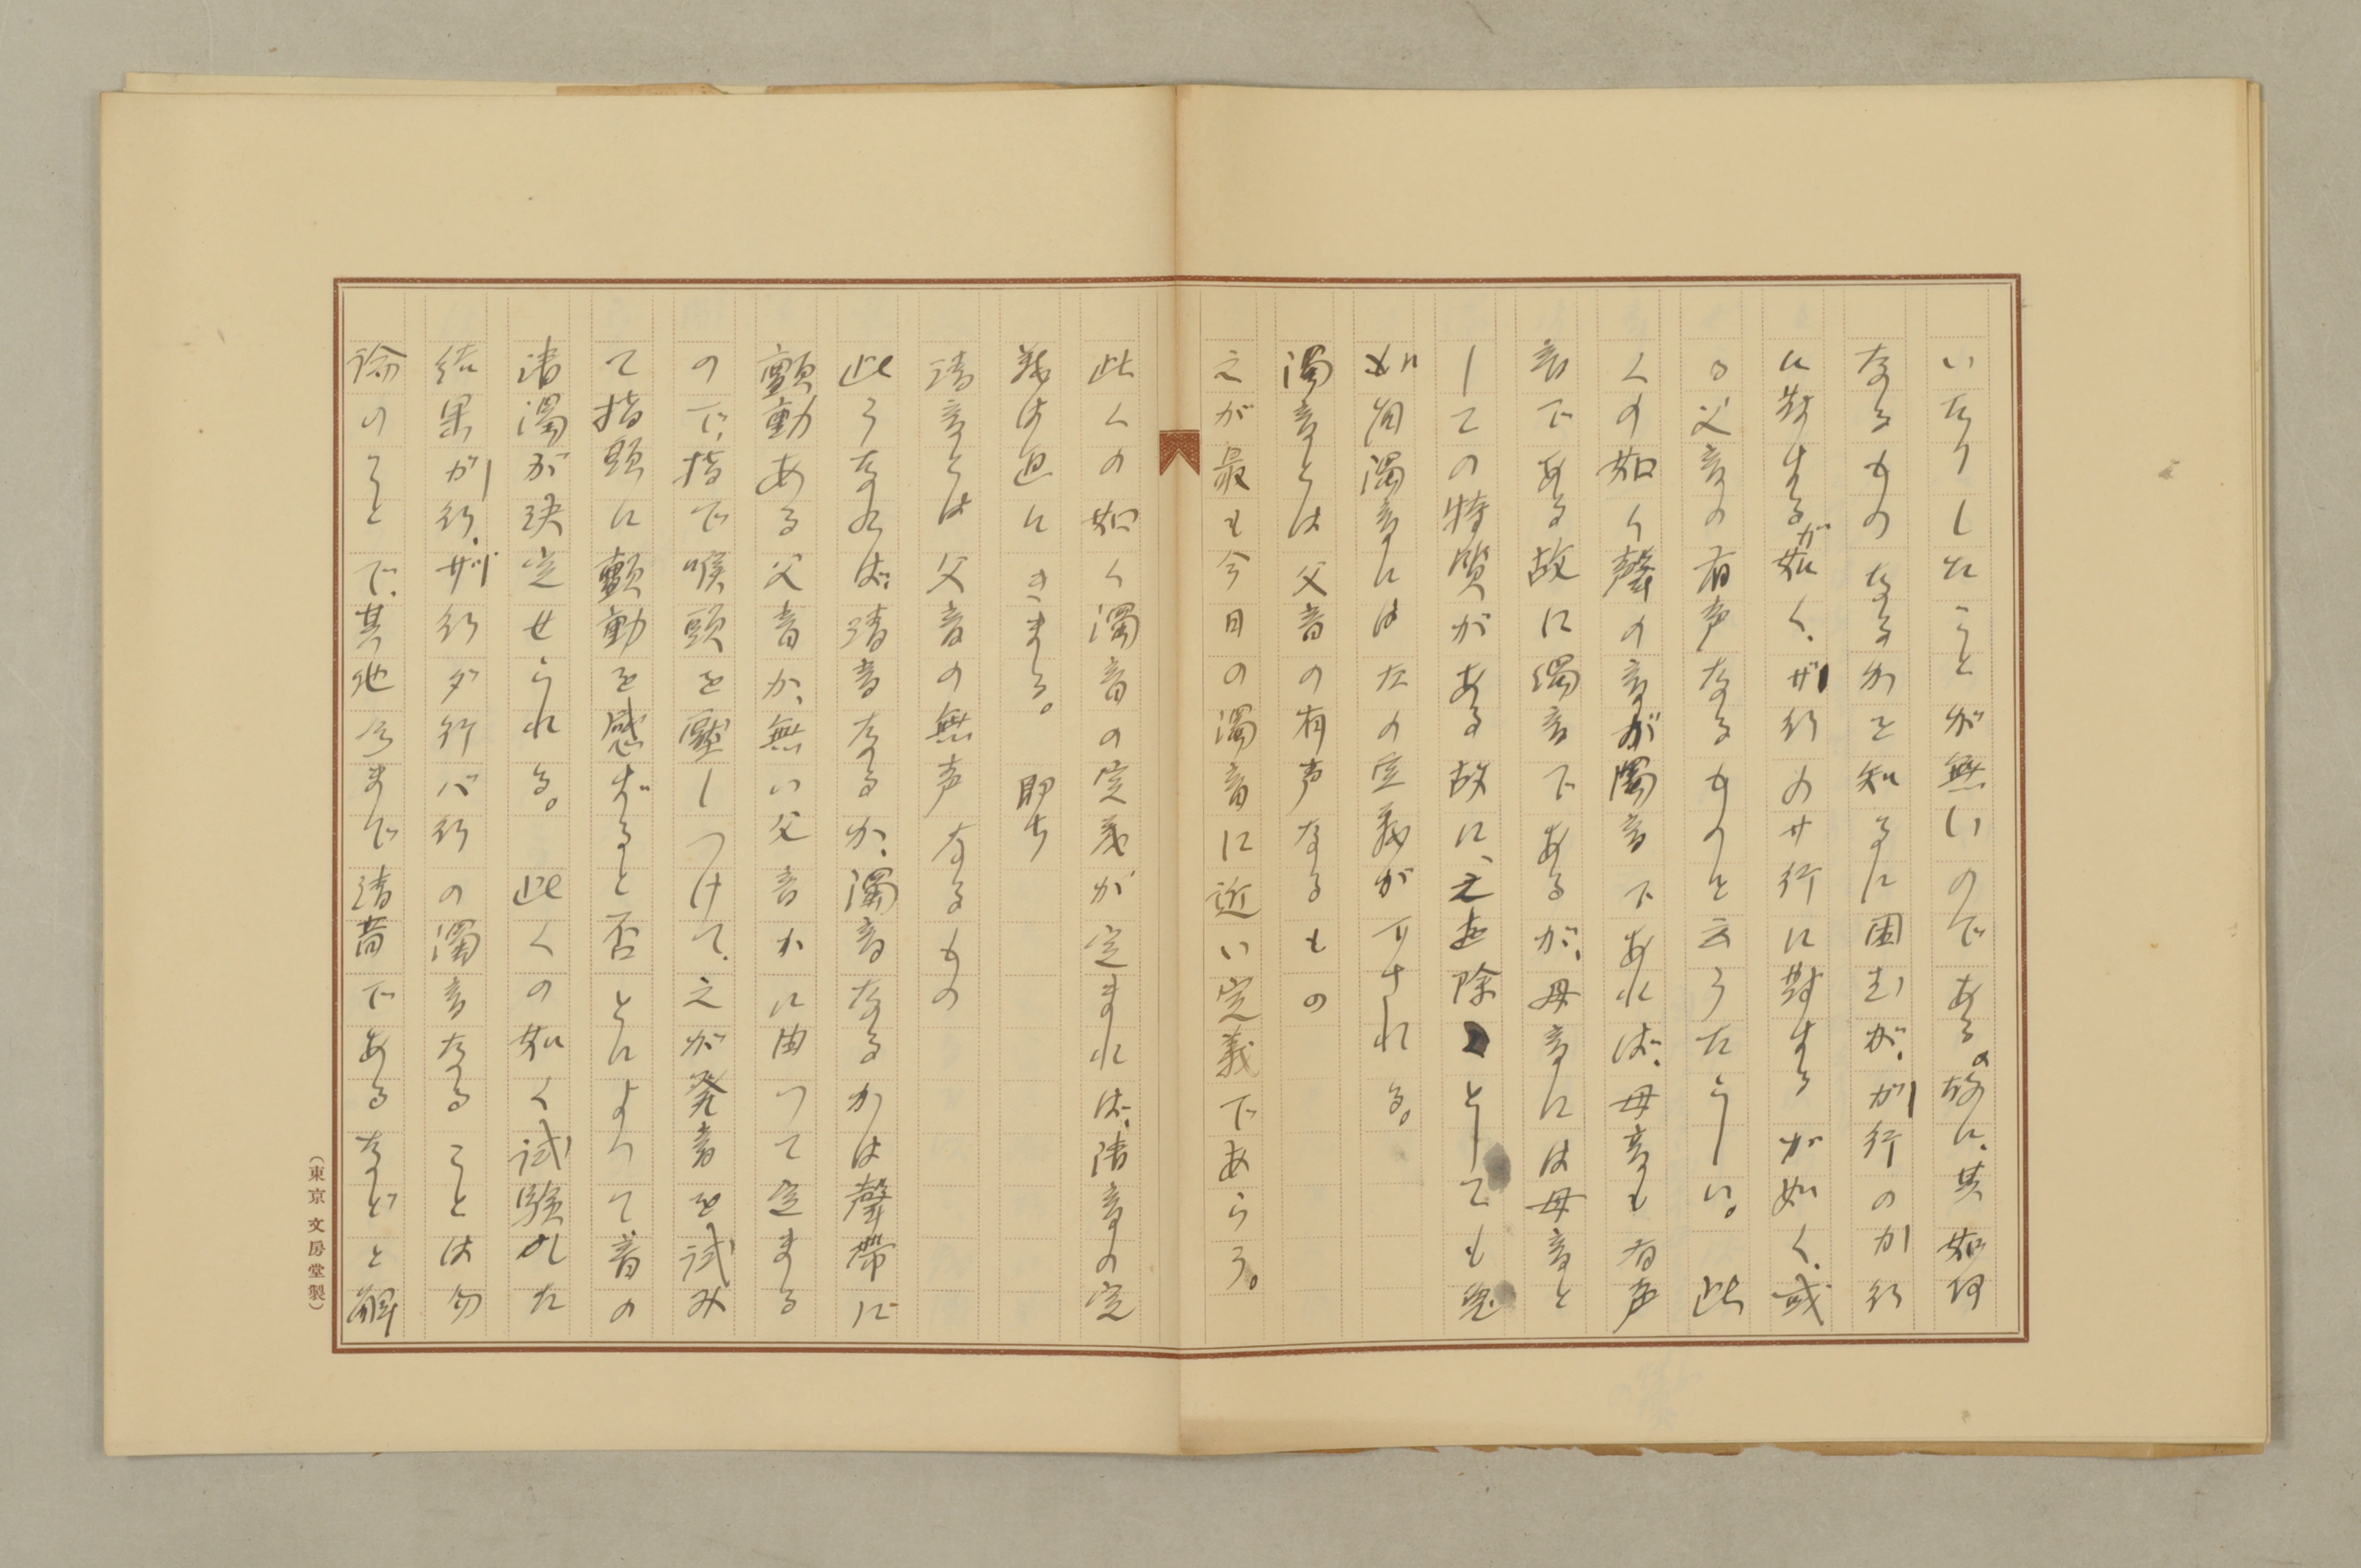 いたりしれことが無いのである。故に、其如何
なるものなるかを知るに困むが、ガ行のカ行
に対するが如く、ザ行のサ行に対するが如く、或
る父音の有声なるものと云うたらしい。此
くの如く聲の音が濁音であれば、母音も有声
音である故に濁音であるが、母音には母音と
しての特質がある故に、之を除としても
如何濁音には左の定義が下される。
濁音とは父音の有声なるもの
之が最も今日の濁音に近い定義であらう。
此くの如く濁音の定義が定まれば、清音の定
義は逆にきまる。即ち
清音とは父音の無声なるもの
此うなれば、清音なるか、濁音なるかは聲帯に
顫動ある父音か、無い父音かに由つて定まる
ので、指で喉頭を壓しつけて、之が発音を試み
て指頭に顫動を感ずると否とによつて、音の
清濁が決定せられる。此くの如く試験した
結果ガ行、ザ行ダ行バ行の濁音なることは勿
論のことで、其他今まで清音であるなどと解
（東京 文房堂製）